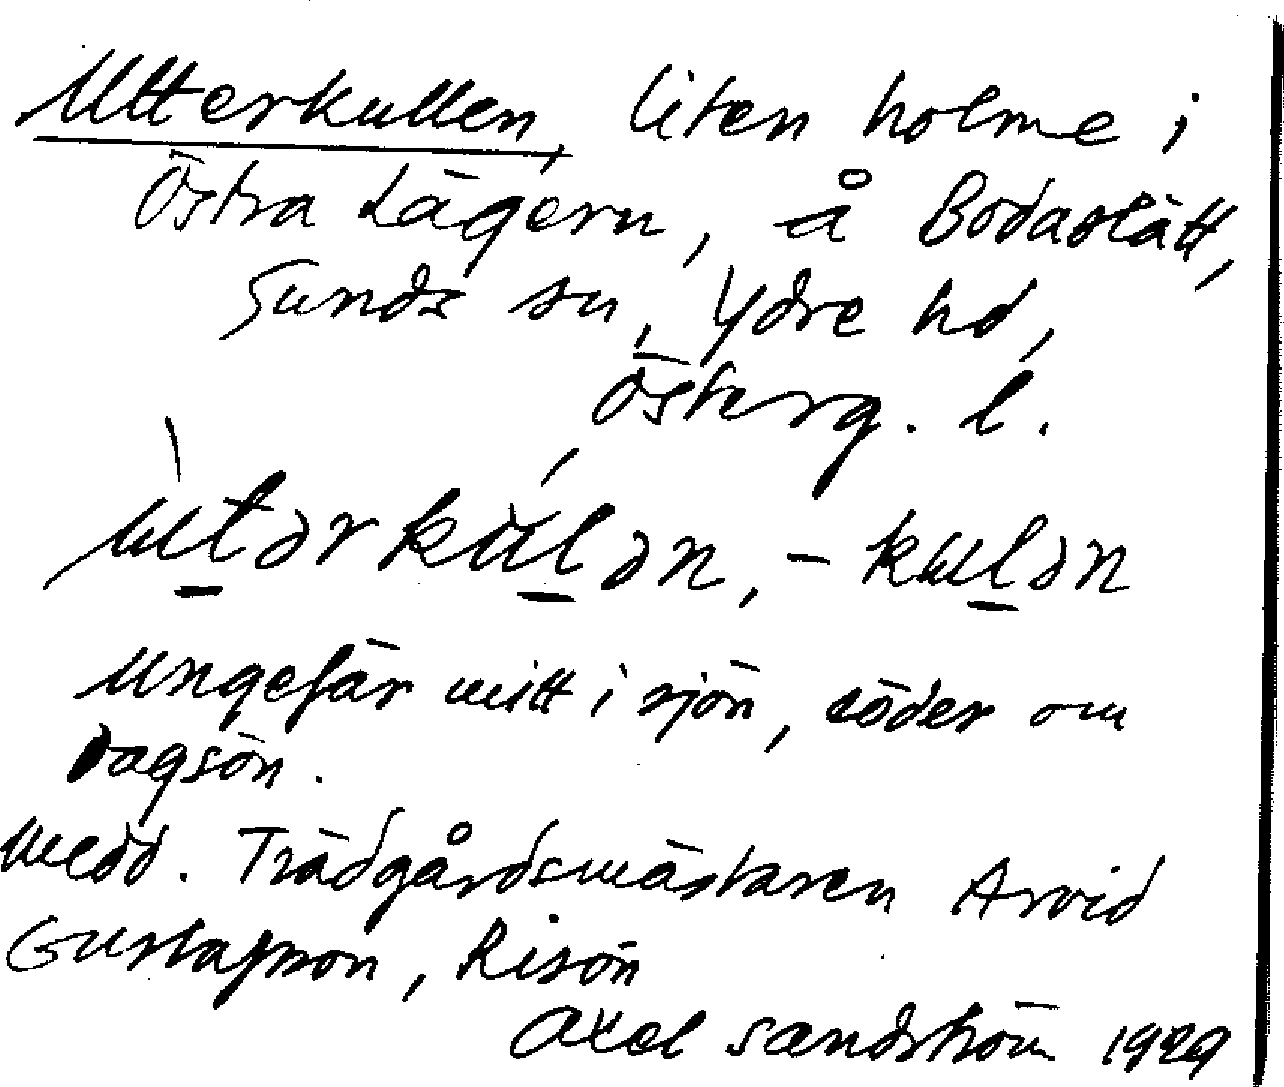 Utterkullen, liten holme i
Östra Lägern, å Bodaslätt,
Sunds sn, Ydre hd,
Österg. l.
ùt̲ərkúl̲ən, -kul̲ən
Ungefär mitt i sjön, söder om
Dagsön.
Medd. Trädgårdsmästaren Arvid
Gustafsson, Risön
Axel Sandström 1929